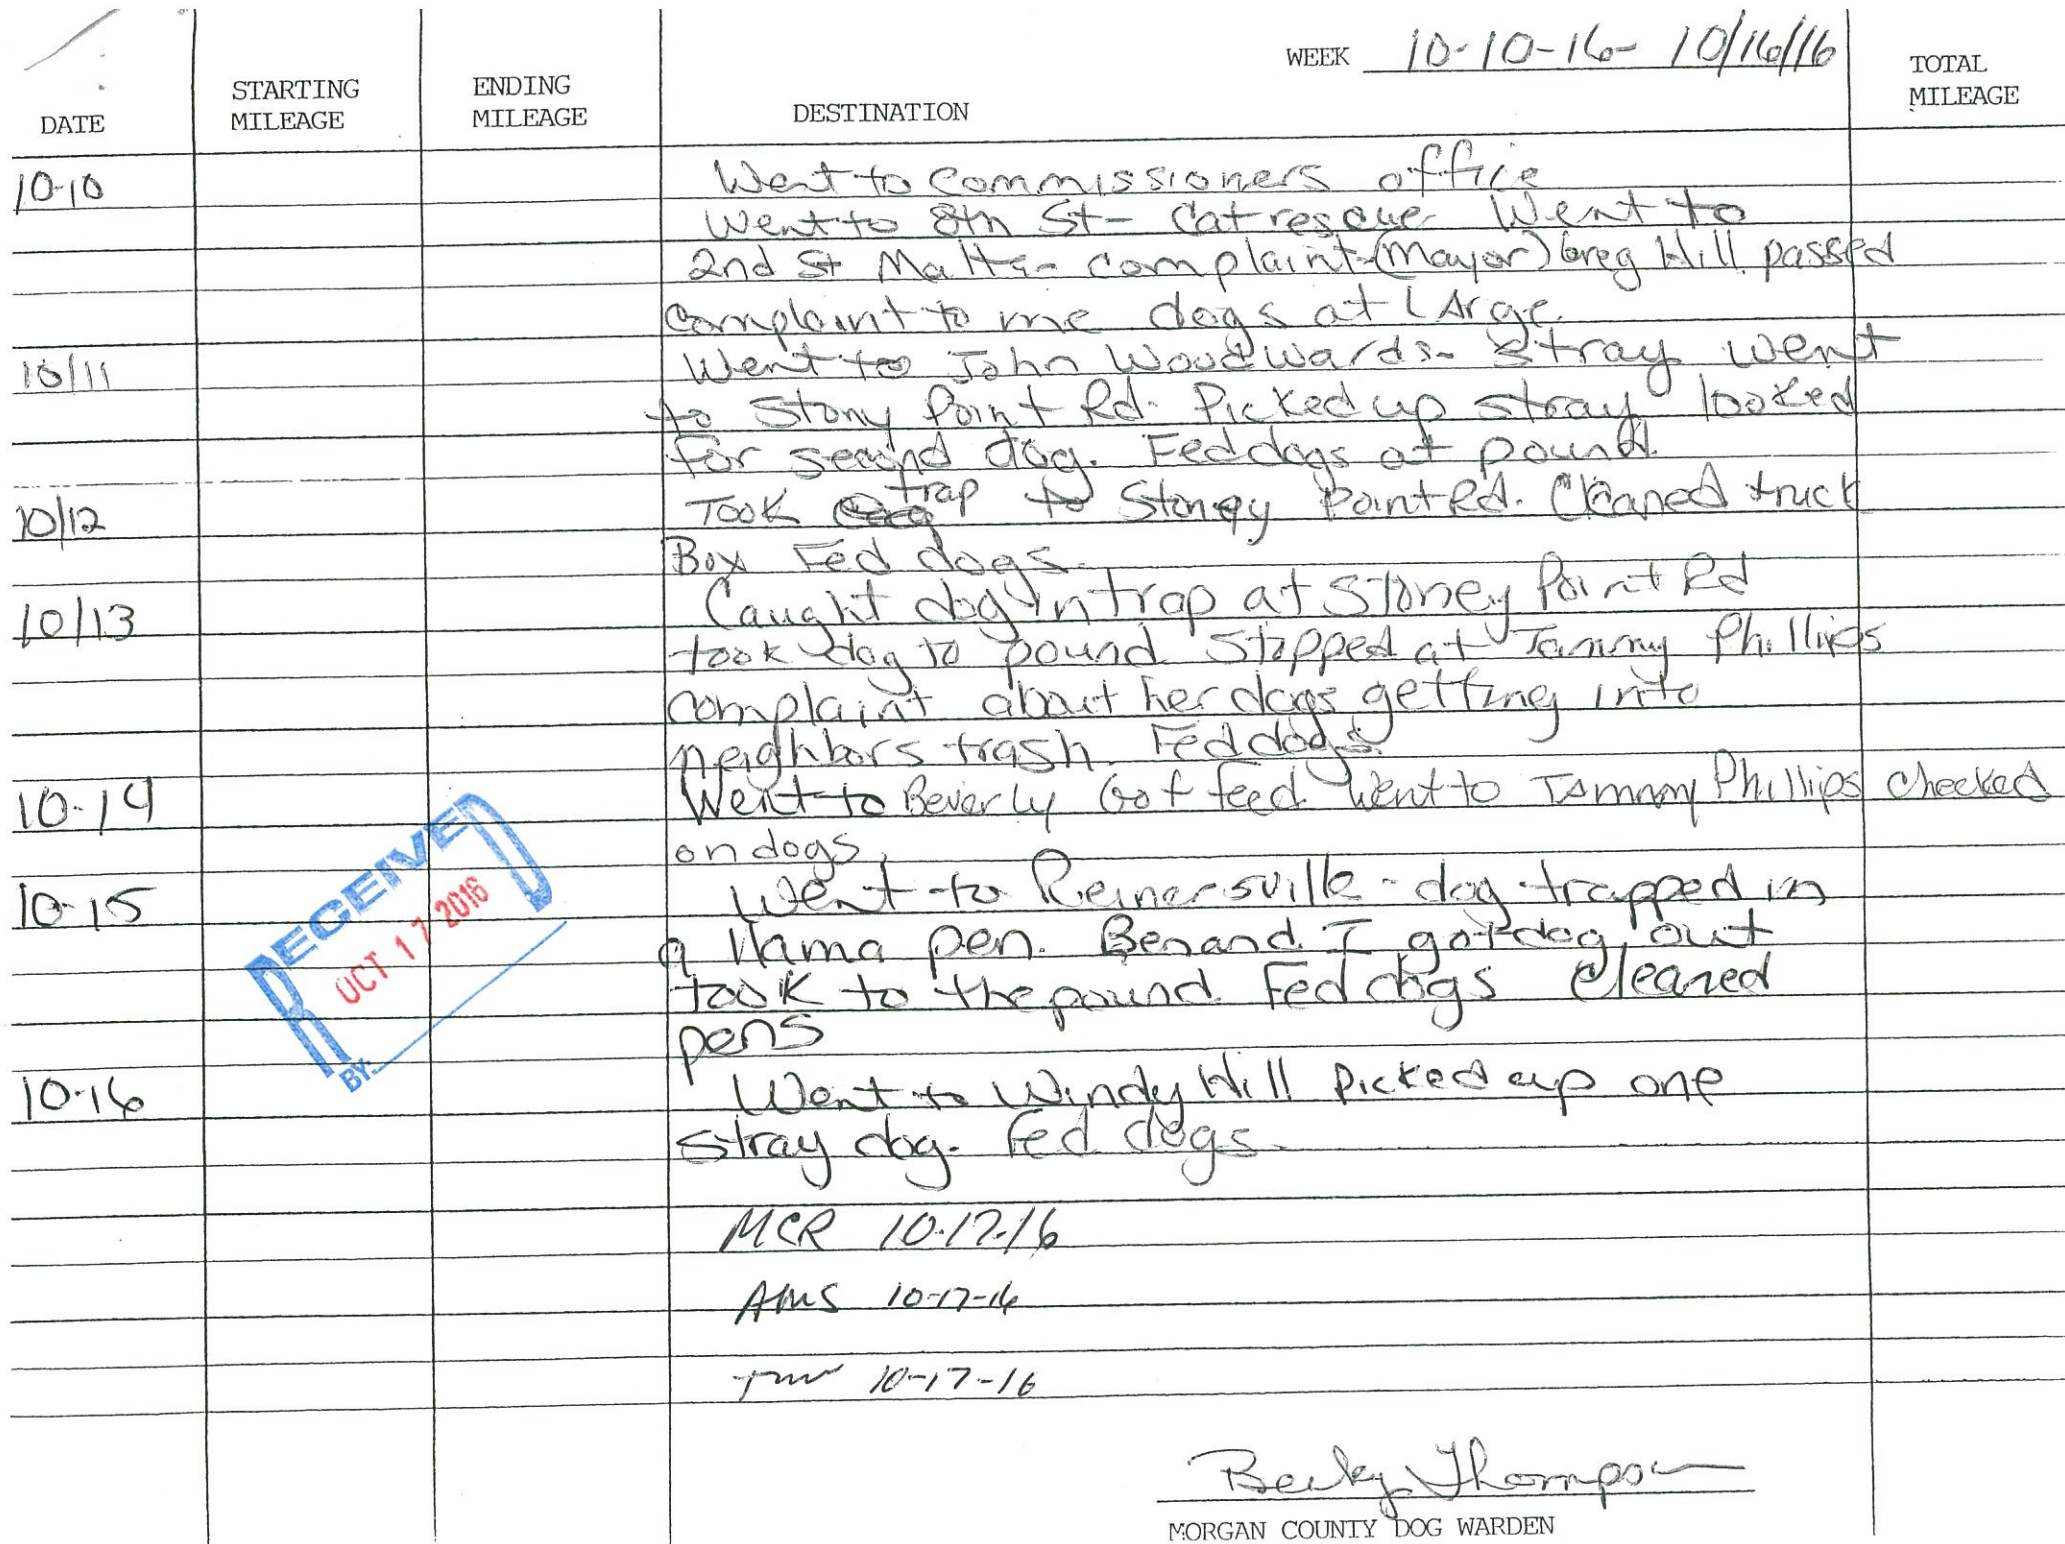 WEEK 10-10-16- 10/16/16
DATE STARTING MILEAGE ENDING MILEAGE DESTINATION TOTAL MILEAGE
10-10 Went to commissioners office
Went to 8th St- Cat rescue Went to
2nd St Malta- complaint-(Mayor) Greg Hill passed
complaint to me dogs at LArge
10/11 Went to John Woodwards- Stray went
to Stony Point Rd. Picked up stray looked
for second dog. Fed dogs at pound
10/12 Took trap to Stoney Point Rd. Cleaned truck
Box Fed dogs
10/13 Caught dog in trap at Stoney Point Rd
took dog to pound Stopped at Tammy Phillips
complaint about her dogs getting into
neighbors trash. Fed dogs
10-14 Went to Beverly Got feed Went to Tammy Phillips checked
on dogs,
10-15 Went to Reinersville - dog trapped in
a llama pen. Ben and I got dog out
took to the pound Fed dogs Cleaned
pens
10-16 Went to Windy Hill Picked up one
stray dog. Fed dogs.
RECEIVED
OCT 17 2016
BY:
MCR 10-17-16
AMS 10-17-16
10-17-16
Becky Thompson
MORGAN COUNTY DOG WARDEN